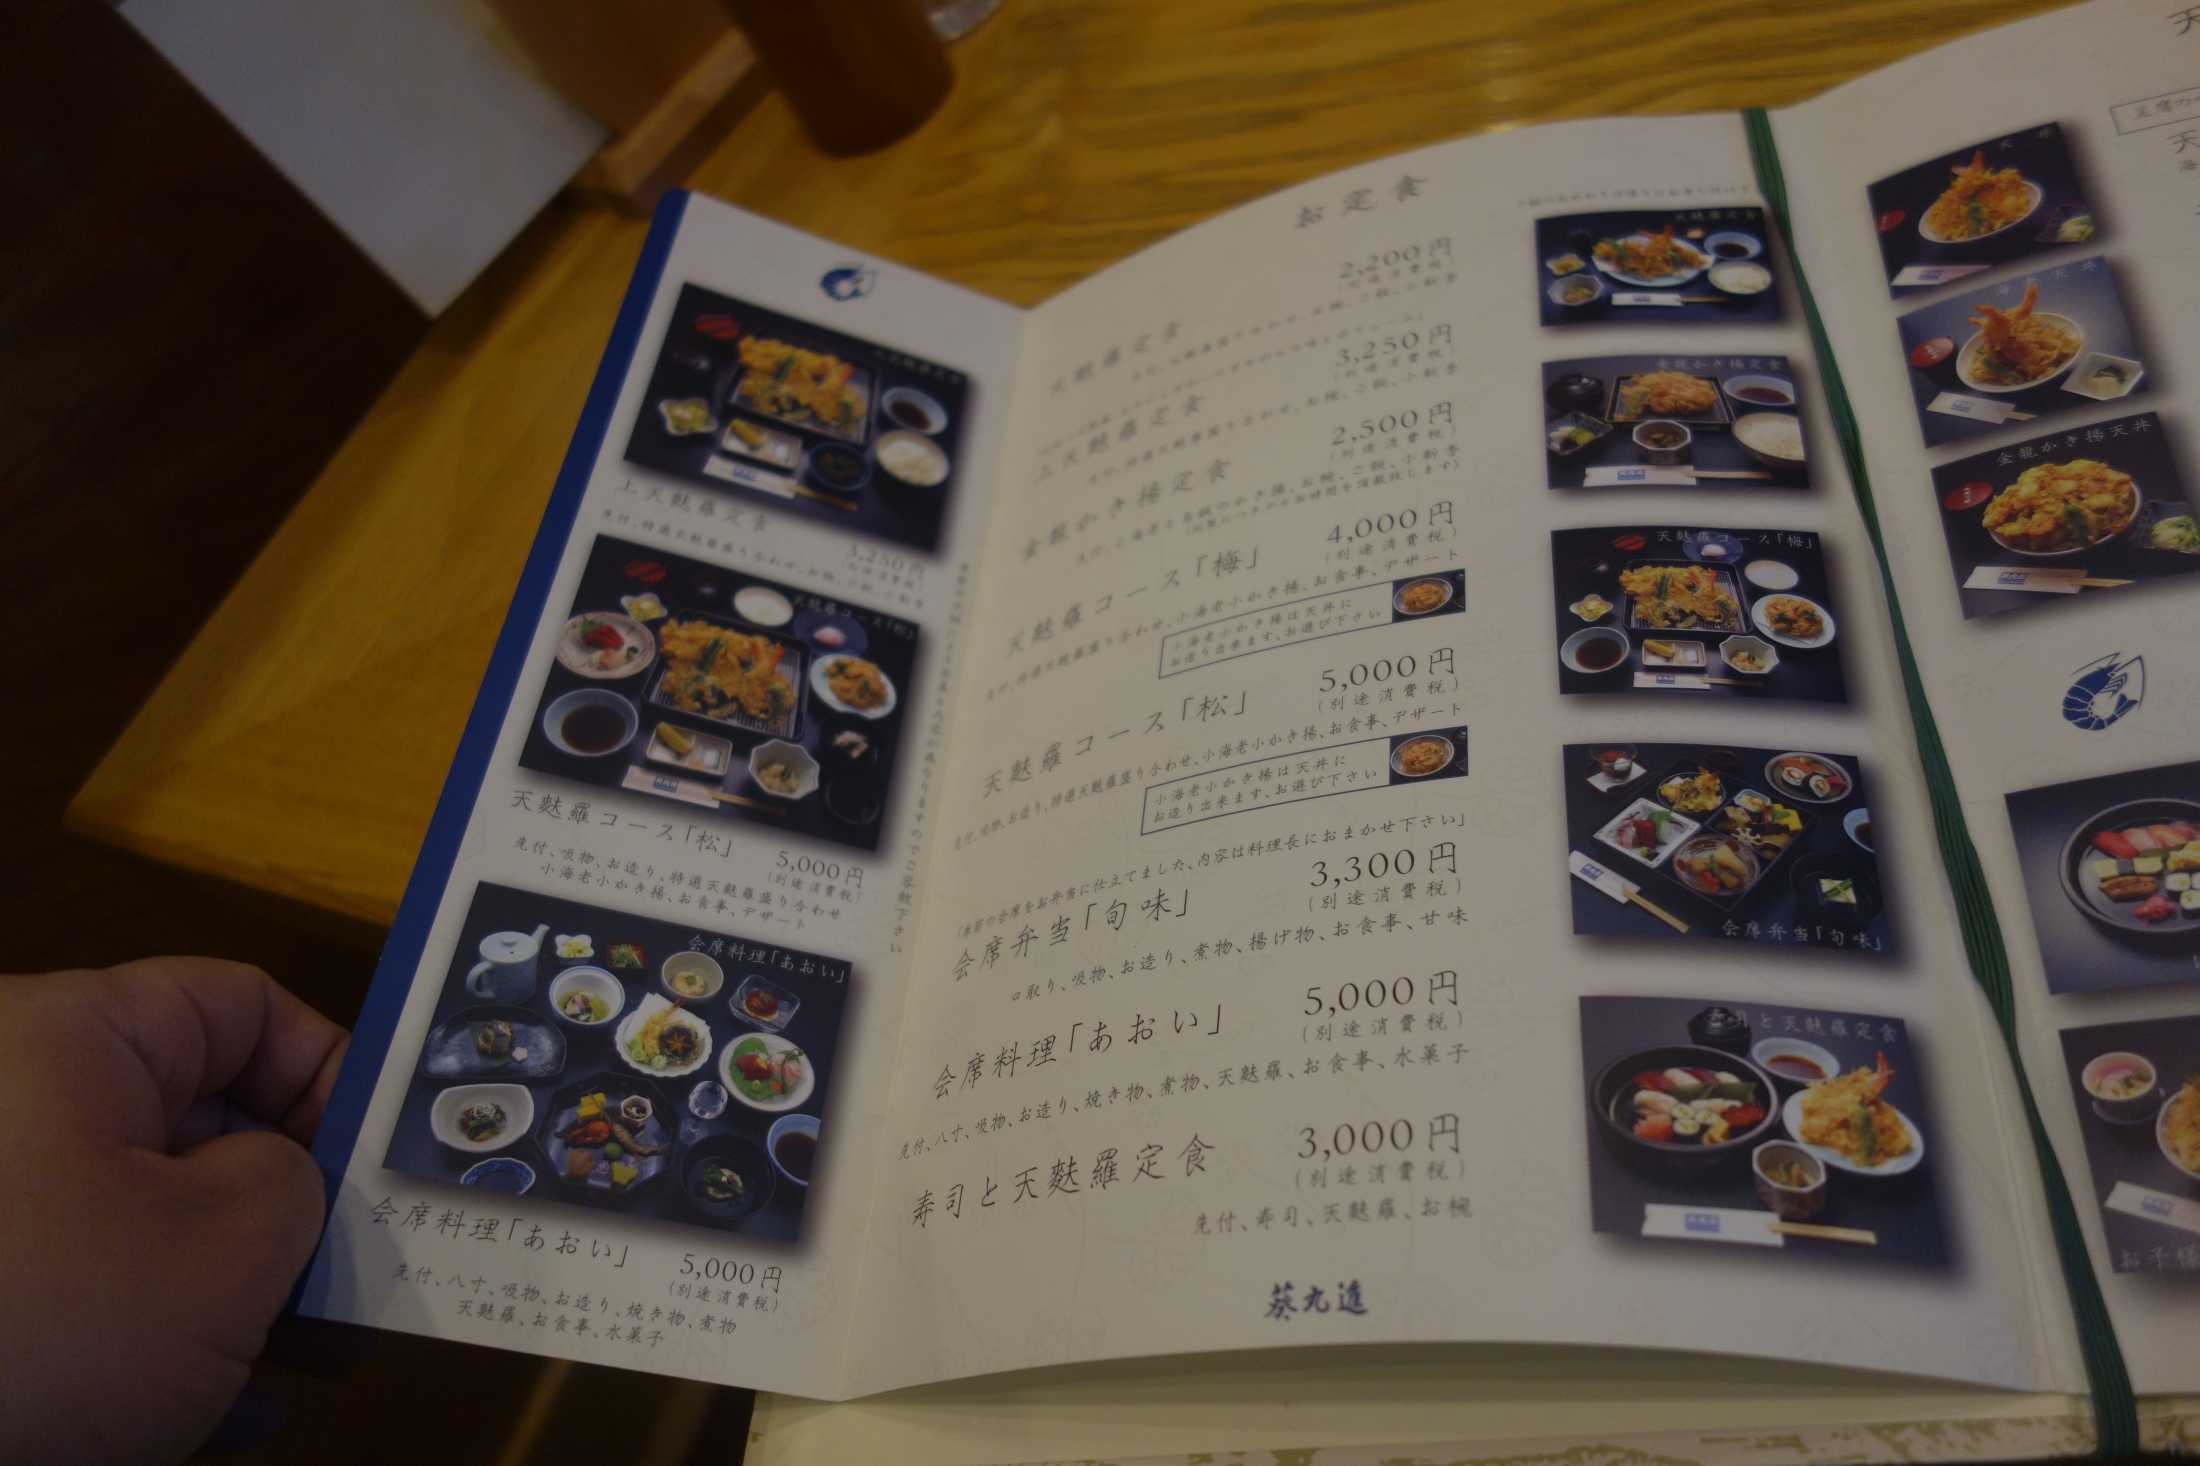 上天麩羅定食
3,250円
(別途消費税)
先付、特選天麩羅盛り合わせ、お椀、ご飯、小新香
天麩羅コース「松」
天麩羅コース「松」
5,000円
(別途消費税)
先付、吸物、お造り、特選天麩羅盛り合わせ
小海老小かき揚、お食事、デザート
会席料理「あおい」
会席料理「あおい」
5,000円
(別途消費税)
先付、八寸、吸物、お造り、焼き物、煮物
天麩羅、お食事、水菓子
お定食
天麩羅定食
2,200円
(別途消費税)
先付、天麩羅盛り合わせ、お椀、ご飯、小新香
上天麩羅定食
3,250円
(別途消費税)
先付、特選天麩羅盛り合わせ、お椀、ご飯、小新香
金龍かき揚定食
2,500円
(別途消費税)
天麩羅コース「梅」
4,000円
(別途消費税)
先付、特選天麩羅盛り合わせ、小海老小かき揚、お食事、デザート
小海老小かき揚は天丼に
お造り出来ます、お選び下さい
天麩羅コース「松」
5,000円
(別途消費税)
先付、吸物、お造り、特選天麩羅盛り合わせ、小海老小かき揚、お食事、デザート
小海老小かき揚は天丼に
お造り出来ます、お選び下さい
「季節の会席をお弁当に仕立てました、内容は料理長におまかせ下さい」
会席弁当「旬味」
3,300円
(別途消費税)
口取り、吸物、お造り、煮物、揚げ物、お食事、甘味
会席料理「あおい」
5,000円
(別途消費税)
先付、八寸、吸物、お造り、焼き物、煮物、天麩羅、お食事、水菓子
寿司と天麩羅定食
3,000円
(別途消費税)
先付、寿司、天麩羅、お椀
葵丸進
天麩羅定食
金龍かき揚定食
天麩羅コース「梅」
会席弁当「旬味」
寿司と天麩羅定食
天丼
海老天丼
金龍かき揚天丼